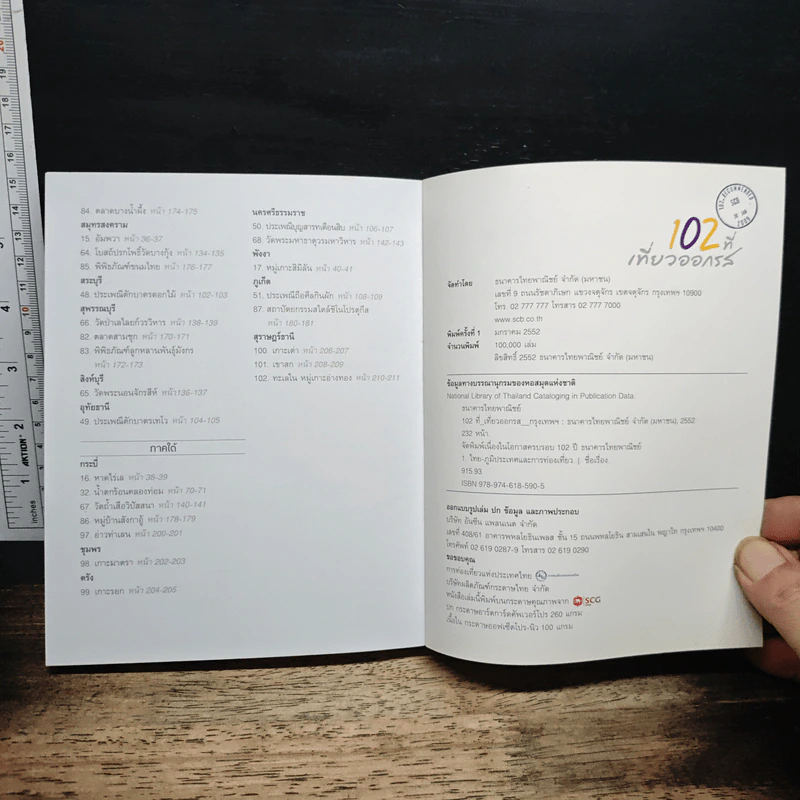 84. ตลาดบางน้ำผึ้ง หน้า 174-175
สมุทรสงคราม
15. อัมพวา หน้า 36-37
64. โบสถ์ปรกโพธิ์วัดบางกุ้ง หน้า 134-135
85. พิพิธภัณฑ์ขนมไทย หน้า 176-177
สระบุรี
48. ประเพณีตักบาตรดอกไม้ หน้า 102-103
สุพรรณบุรี
66. วัดป่าเลไลยก์วรวิหาร หน้า 138-139
82. ตลาดสามชุก หน้า 170-171
83. พิพิธภัณฑ์ลูกหลานพันธุ์มังกร
หน้า 172-173
สิงห์บุรี
65. วัดพระนอนจักรสีห์ หน้า136-137
อุทัยธานี
49. ประเพณีตักบาตรเทโว หน้า 104-105
ภาคใต้
กระบี่
16. หาดไร่เล หน้า 38-39
32. น้ำตกร้อนคลองท่อม หน้า 70-71
67. วัดถ้ำเสือวิปัสสนา หน้า 140-141
86. หมู่บ้านสังกาอู้ หน้า 178-179
97. อ่าวท่าเลน หน้า 200-201
ชุมพร
98. เกาะมาตรา หน้า 202-203
ตรัง
99. เกาะรอก หน้า 204-205
นครศรีธรรมราช
50. ประเพณีบุญสารทเดือนสิบ หน้า 106-107
68. วัดพระมหาธาตุวรมหาวิหาร หน้า 142-143
พังงา
17. หมู่เกาะสิมิลัน หน้า 40-41
ภูเก็ต
51. ประเพณีถือศีลกินผัก หน้า 108-109
87. สถาปัตยกรรมสไตล์ชิโนโปรตุกีส
หน้า 180-181
สุราษฎร์ธานี
100. เกาะเต่า หน้า 206-207
101. เขาสก หน้า 208-209
102. ทะเลใน หมู่เกาะอ่างทอง หน้า 210-211
102 ที่
เที่ยวออกรส
102 RECOMMENDED
SCB
2009
จัดทำโดย ธนาคารไทยพาณิชย์ จำกัด (มหาชน)
เลขที่ 9 ถนนรัชดาภิเษก แขวงจตุจักร เขตจตุจักร กรุงเทพฯ 10900
โทร. 02 777 777 โทรสาร 02 777 7000
www.scb.co.th
พิมพ์ครั้งที่ 1 มกราคม 2552
จำนวนพิมพ์ 100,000 เล่ม
ลิขสิทธิ์ 2552 ธนาคารไทยพาณิชย์ จำกัด (มหาชน)
ข้อมูลทางบรรณานุกรมของหอสมุดแห่งชาติ
National Library of Thailand Cataloging in Publication Data.
ธนาคารไทยพาณิชย์
102 ที่_เที่ยวออกรส__กรุงเทพฯ : ธนาคารไทยพาณิชย์ จำกัด (มหาชน), 2552
232 หน้า.
จัดพิมพ์เนื่องในโอกาสครบรอบ 102 ปี ธนาคารไทยพาณิชย์
1. ไทย-ภูมิประเทศและการท่องเที่ยว. |. ชื่อเรื่อง.
915.93.
ISBN 978-974-618-590-5
ออกแบบรูปเล่ม ปก ข้อมูล และภาพประกอบ
บริษัท อันซีน แพลนเนต จำกัด
เลขที่ 408/61 อาคารพหลโยธินเพลส ชั้น 15 ถนนพหลโยธิน สามเสนใน พญาไท กรุงเทพฯ 10400
โทรศัพท์ 02 619 0287-9 โทรสาร 02 619 0290
ขอขอบคุณ
การท่องเที่ยวแห่งประเทศไทย
บริษัทผลิตภัณฑ์กระดาษไทย จำกัด
หนังสือเล่มนี้พิมพ์บนกระดาษคุณภาพจาก SCG
ปก กระดาษอาร์ตการ์ดคัฟเวอร์โปร 260 แกรม
เนื้อใน กระดาษออฟเซ็ตโปร-นิว 100 แกรม